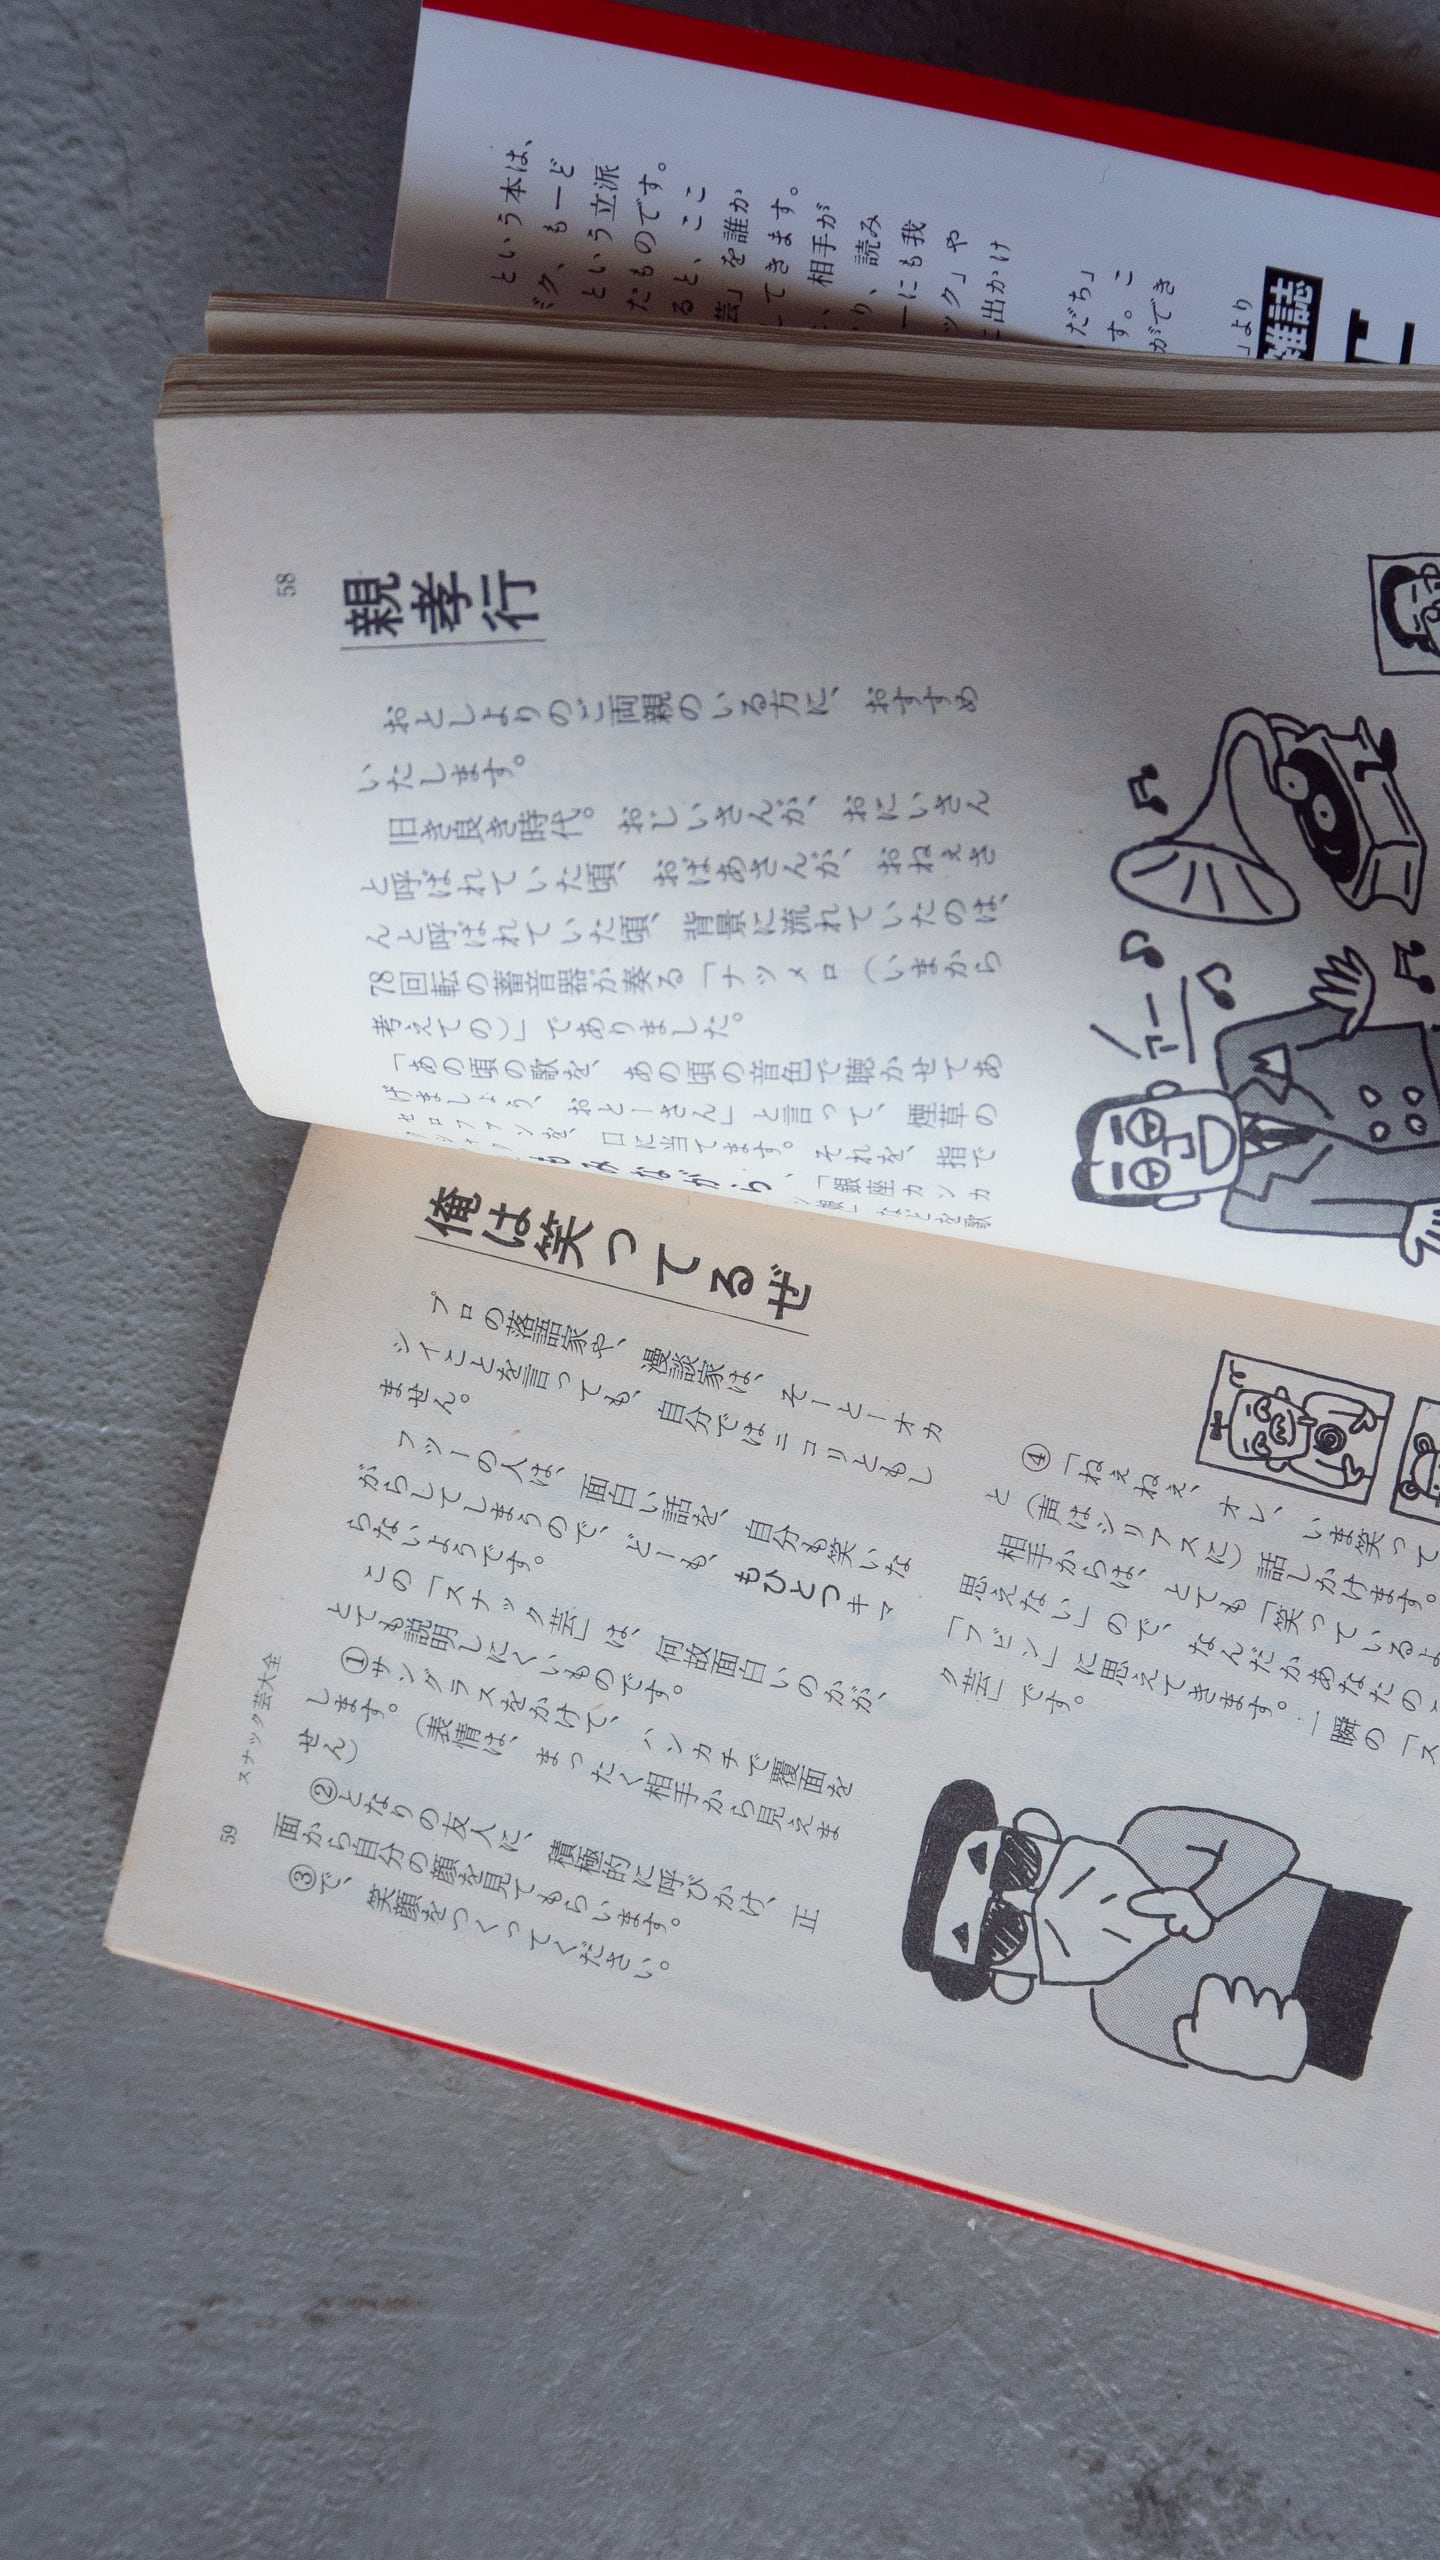 という本は、
ミク、も一ど
という立派
だものです。
ると、ここ
芸」を誰か
してきます。
、相手が
り、読み
ーにも我
ック」や
に出かけ
だち」
す。こ
ができ
」より
雑誌
58
親孝行
おとしよりのご両親のいる方に、おすすめ
いたします。
旧き良き時代。おじいさんが、おにいさん
と呼ばれていた頃、おばあさんが、おねえさ
んと呼ばれていた頃、背景に流れていたのは、
78回転の蓄音器が奏る「ナツメロ（いまから
考えての）」でありました。
「あの頃の歌を、あの頃の音色で聴かせてあ
げましょう、おとーさん」と言って、煙草の
セロファンを、口に当てます。それを、指で
もみながら、「銀座カンカ
ン娘」などを歌
俺は笑ってるぜ
プロの落語家や、漫談家は、そーとーオカ
シイことを言っても、自分ではニコリともし
ません。
フツーの人は、面白い話を、自分も笑いな
がらしてしまうので、どーも、もひとつキマ
らないようです。
この「スナック芸」は、何故面白いのかが、
とても説明しにくいものです。
①サングラスをかけて、ハンカチで覆面を
します。（表情は、まったく相手から見えま
せん）
②となりの友人に、積極的に呼びかけ、正
面から自分の顔を見てもらいます。
③で、笑顔をつくってください。
④「ねぇねぇ、オレ、いま笑って
と（声はシリアスに）話しかけます。
相手からは、とても「笑っているよ
思えない」ので、なんだかあなたの
「フビン」に思えてきます。一瞬の「ス
ク芸」です。
スナック芸大全
59